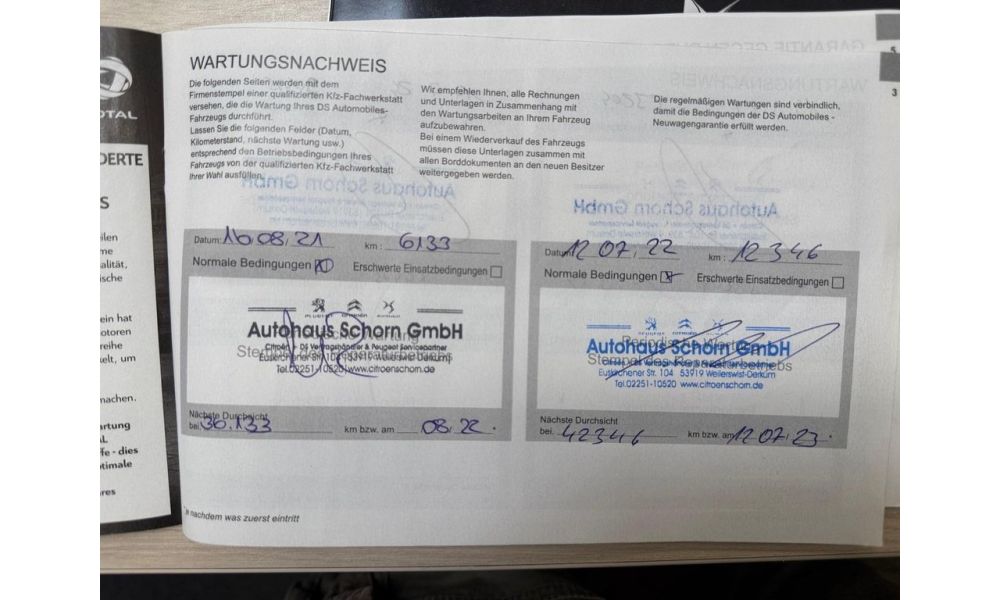 TOTAL
DERTE
S
WARTUNGSNACHWEIS
Die folgenden Seiten werden mit dem
Firmenstempel einer qualifizierten Kfz-Fachwerkstatt
versehen, die die Wartung Ihres DS Automobiles-
Fahrzeugs durchführt.
Lassen Sie die folgenden Felder (Datum,
Kilometerstand, nächste Wartung usw.)
entsprechend den Betriebsbedingungen Ihres
Fahrzeugs von der qualifizierten Kfz-Fachwerkstatt
Ihrer Wahl ausfüllen.
Wir empfehlen Ihnen, alle Rechnungen
und Unterlagen in Zusammenhang mit
den Wartungsarbeiten an Ihrem Fahrzeug
aufzubewahren.
Bei einem Wiederverkauf des Fahrzeugs
müssen diese Unterlagen zusammen mit
allen Borddokumenten an den neuen Besitzer
weitergegeben werden.
Die regelmäßigen Wartungen sind verbindlich,
damit die Bedingungen der DS Automobiles -
Neuwagengarantie erfüllt werden.
5
3
Datum: 16 08/21 km : 6133
Normale Bedingungen Erschwerte Einsatzbedingungen
Autohaus Schorn GmbH
Citroën + DS Vertragshändler & Peugeot Servicepartner
Stempel des Reparaturbetriebs
Euskirchener Str. 104 53919 Weilerswist-Derkum
Tel.02251-10520 www.citroenschorn.de
Nächste Durchsicht
bei. 36.133 km bzw. am 08/22 .
Datum: 12 07/22 km : 12 346
Normale Bedingungen Erschwerte Einsatzbedingungen
Periodische Wartung
Autohaus Schorn GmbH
Stempel des Reparaturbetriebs
Euskirchener Str. 104 53919 Weilerswist-Derkum
Tel.02251-10520 www.citroenschorn.de
Nächste Durchsicht
bei. 42346 km bzw. am 12 07/23 .
ilen
me
alität,
ische
ein hat
otoren
reihe
elt, um
machen.
artung
fe - dies
timale
res
*je nachdem was zuerst eintritt